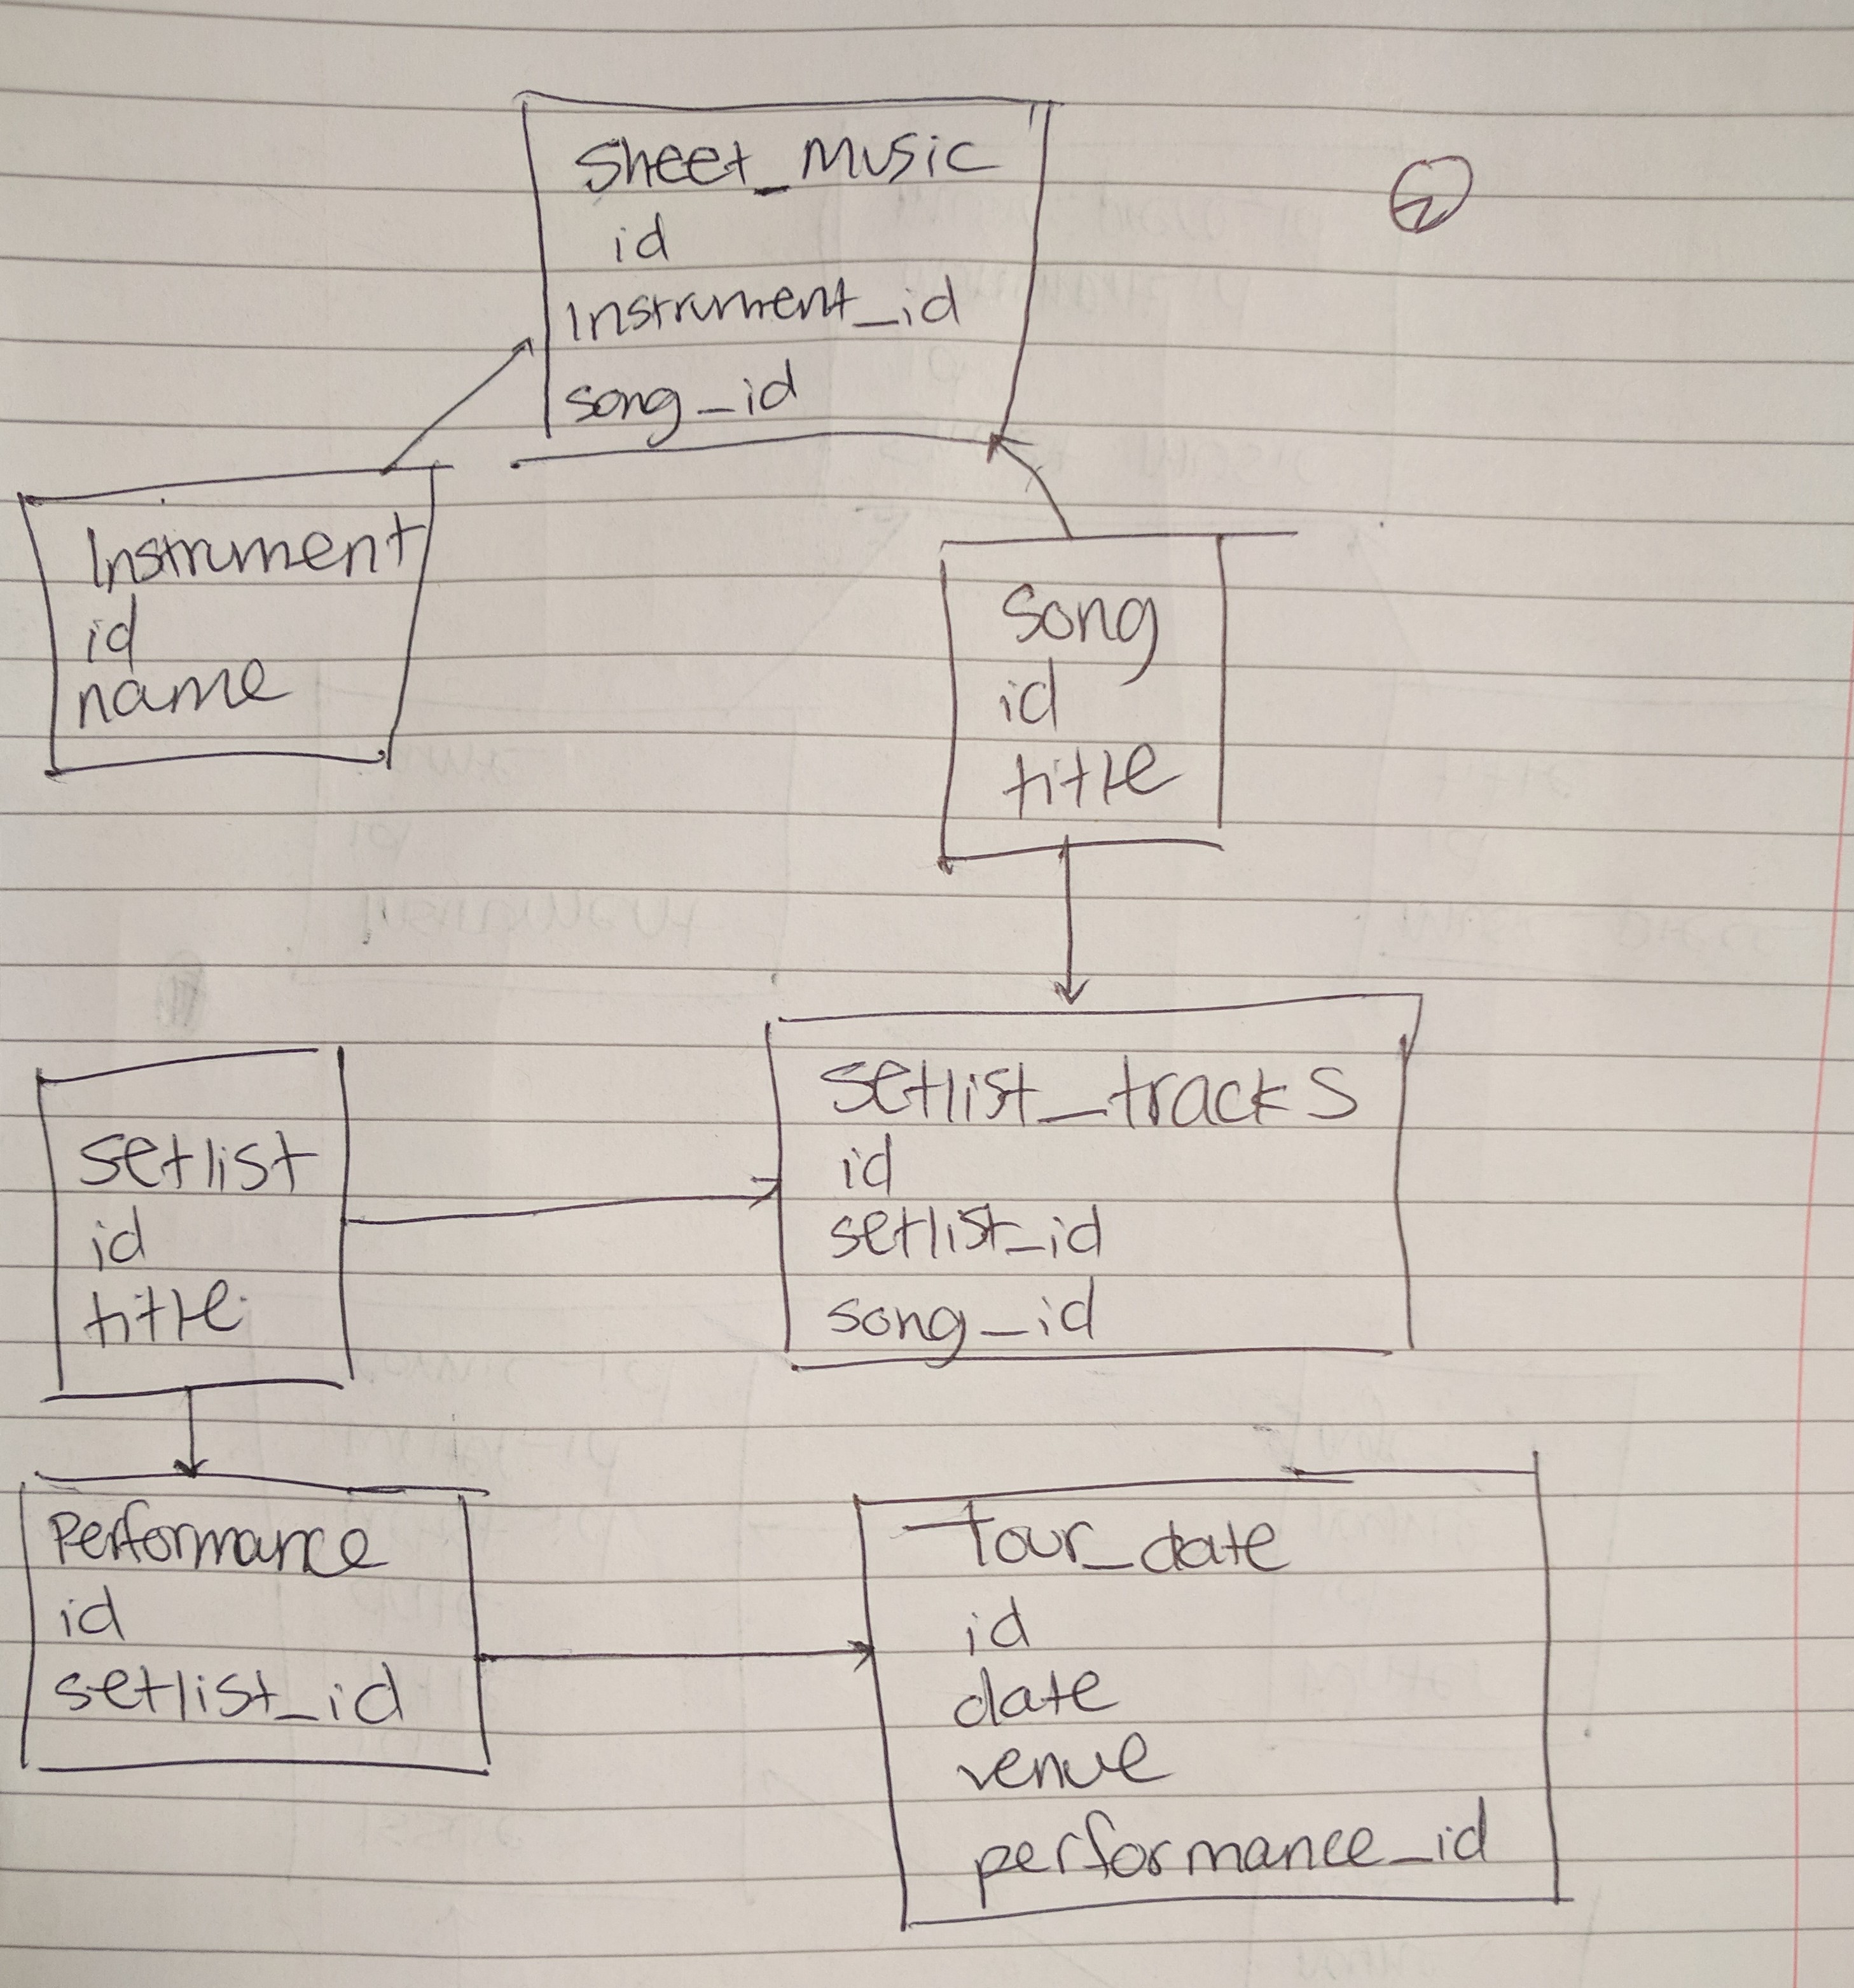 Sheet_Music
id
Instrument_id
song_id
Instrument
id
name
Song
id
title
setlist_tracks
id
setlist_id
song_id
setlist
id
title
Performance
id
setlist_id
Tour_date
id
date
venue
performance_id